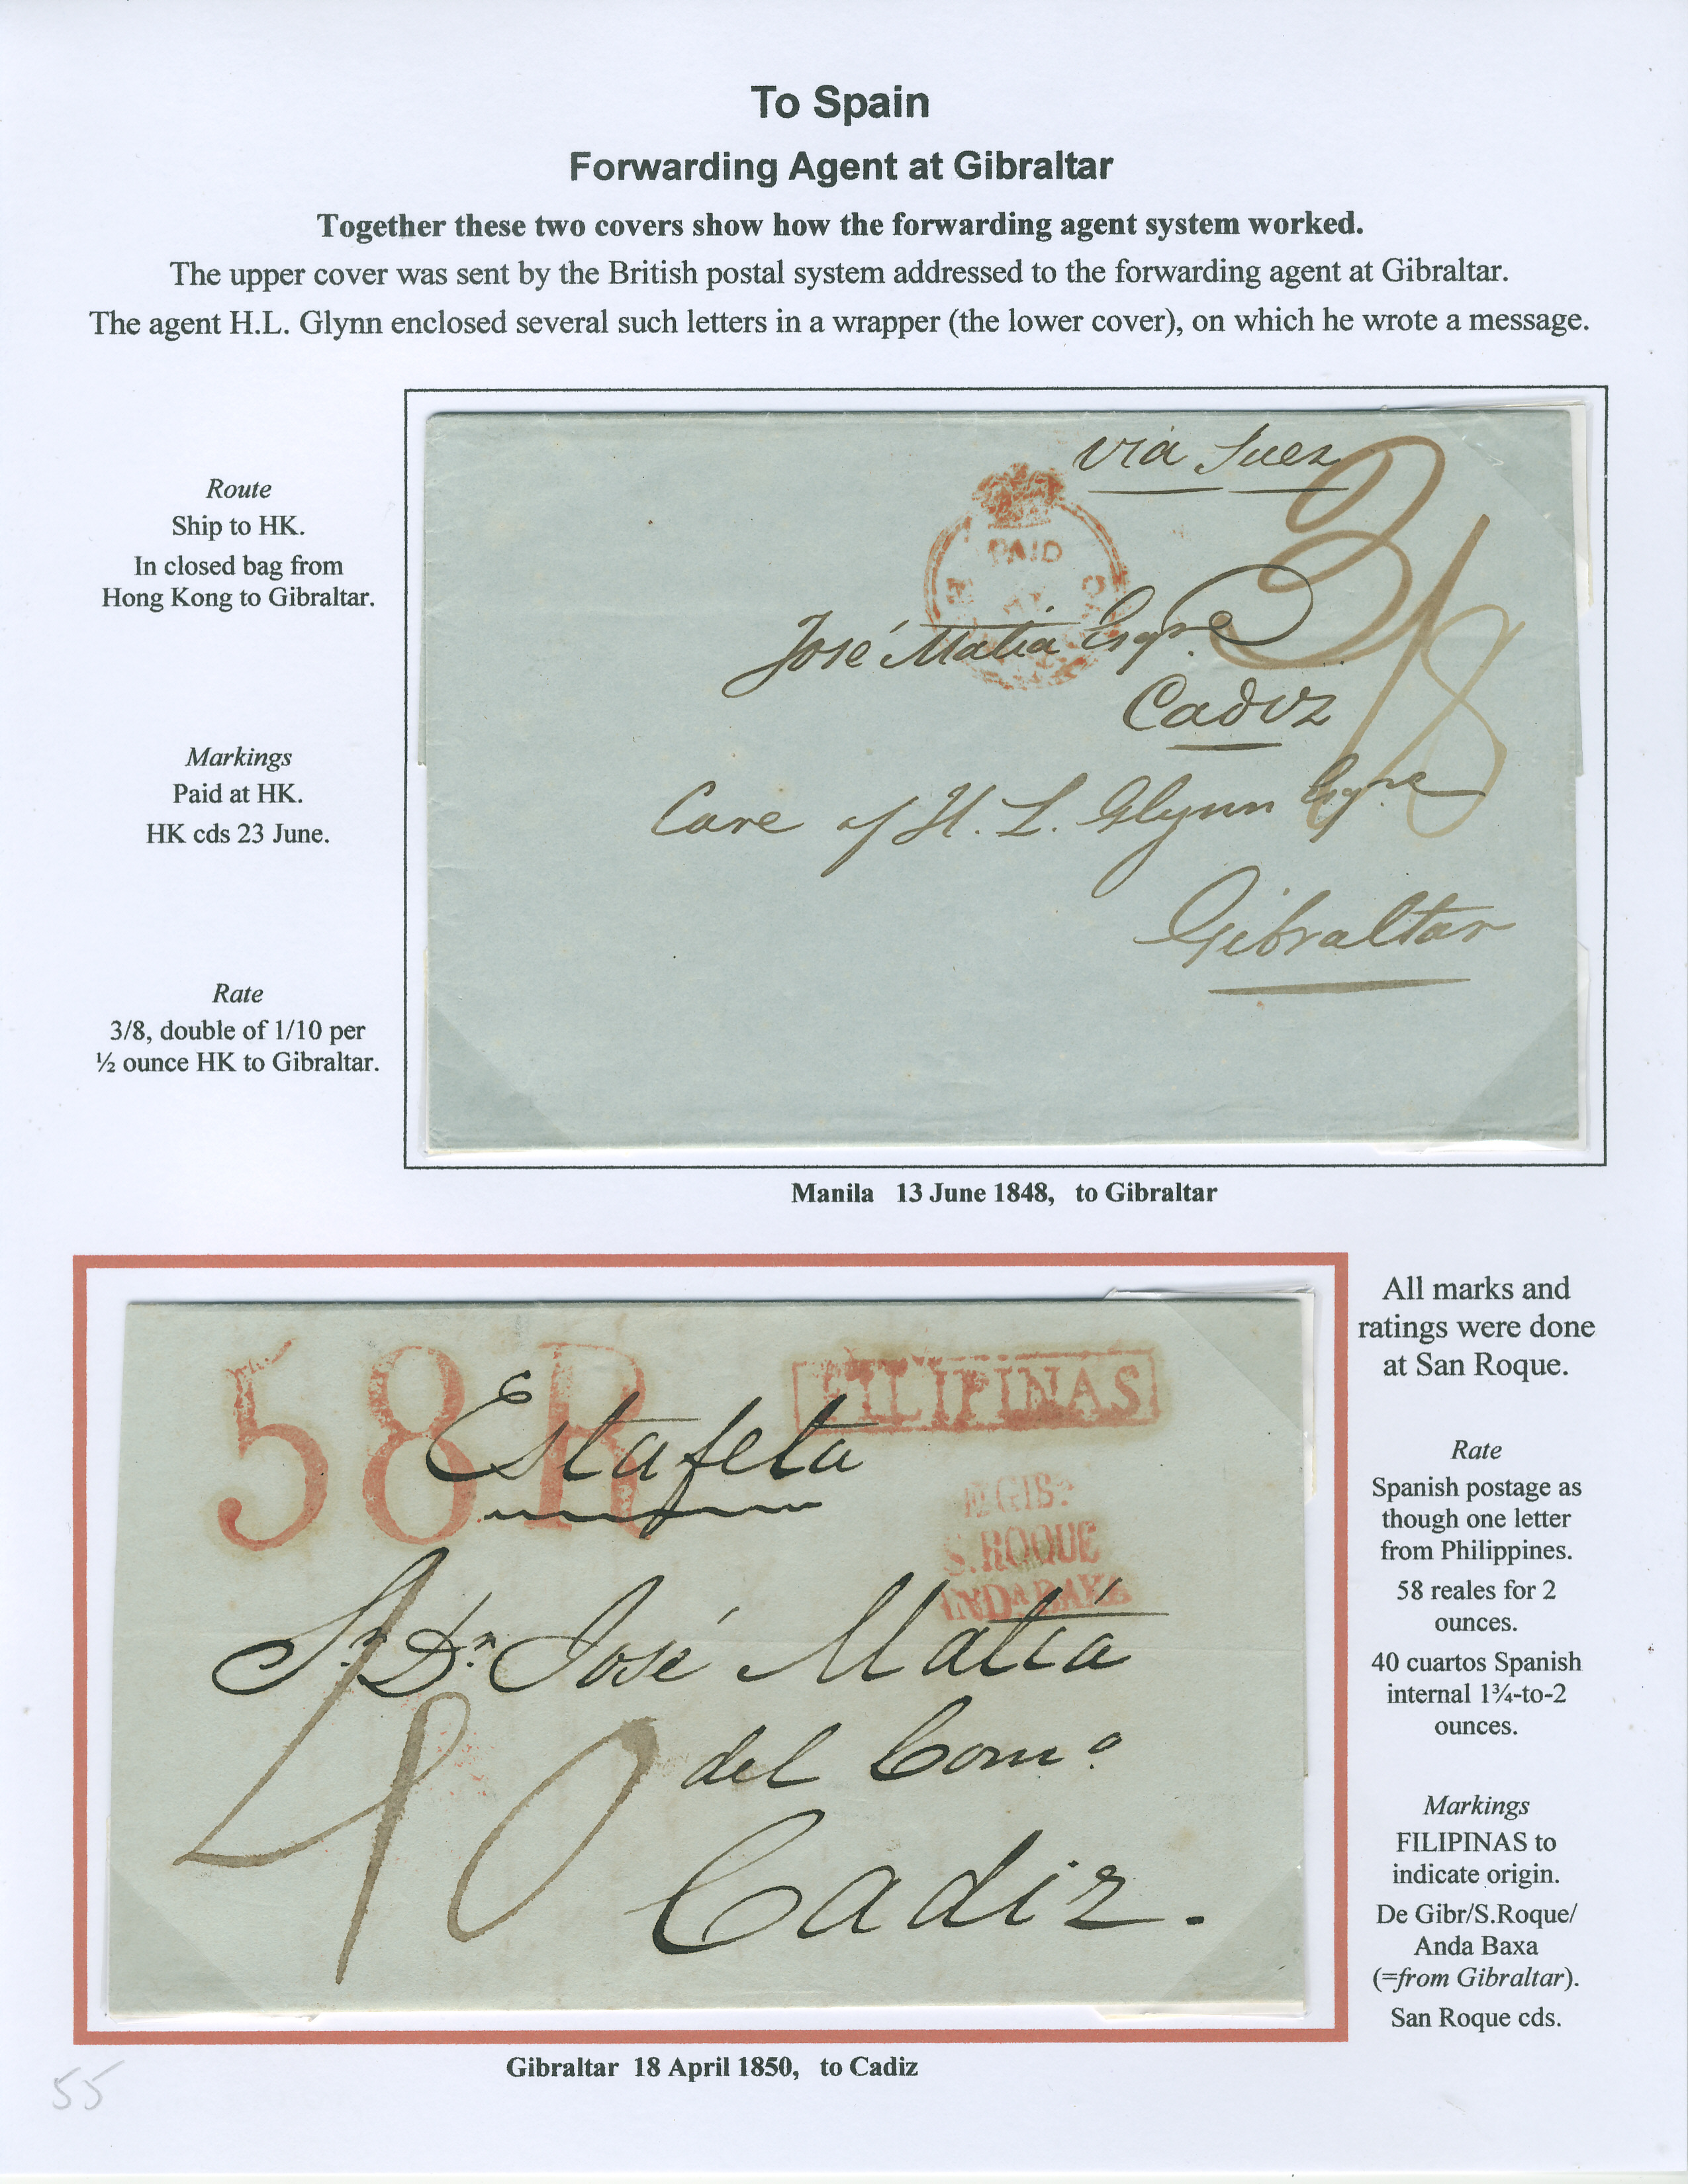 To Spain
Forwarding Agent at Gibraltar
Together these two covers show how the forwarding agent system worked.
The upper cover was sent by the British postal system addressed to the forwarding agent at Gibraltar.
The agent H.L. Glynn enclosed several such letters in a wrapper (the lower cover), on which he wrote a message.
Route
Ship to HK.
In closed bag from
Hong Kong to Gibraltar.
Markings
Paid at HK.
HK cds 23 June.
Rate
3/8, double of 1/10 per
½ ounce HK to Gibraltar.
via Suez
3/8
PAID
José Matia Esqre
Cadiz
Care of H. L. Glynn Esqre
Gibraltar
Manila 13 June 1848, to Gibraltar
58 R
FILIPINAS
Estafeta
S. ROQUE
ANDA BAXA
Sr. Dn. José Matia
40
del Como
Cadiz.
Gibraltar 18 April 1850, to Cadiz
All marks and
ratings were done
at San Roque.
Rate
Spanish postage as
though one letter
from Philippines.
58 reales for 2
ounces.
40 cuartos Spanish
internal 1¾-to-2
ounces.
Markings
FILIPINAS to
indicate origin.
De Gibr/S.Roque/
Anda Baxa
(=from Gibraltar).
San Roque cds.
55